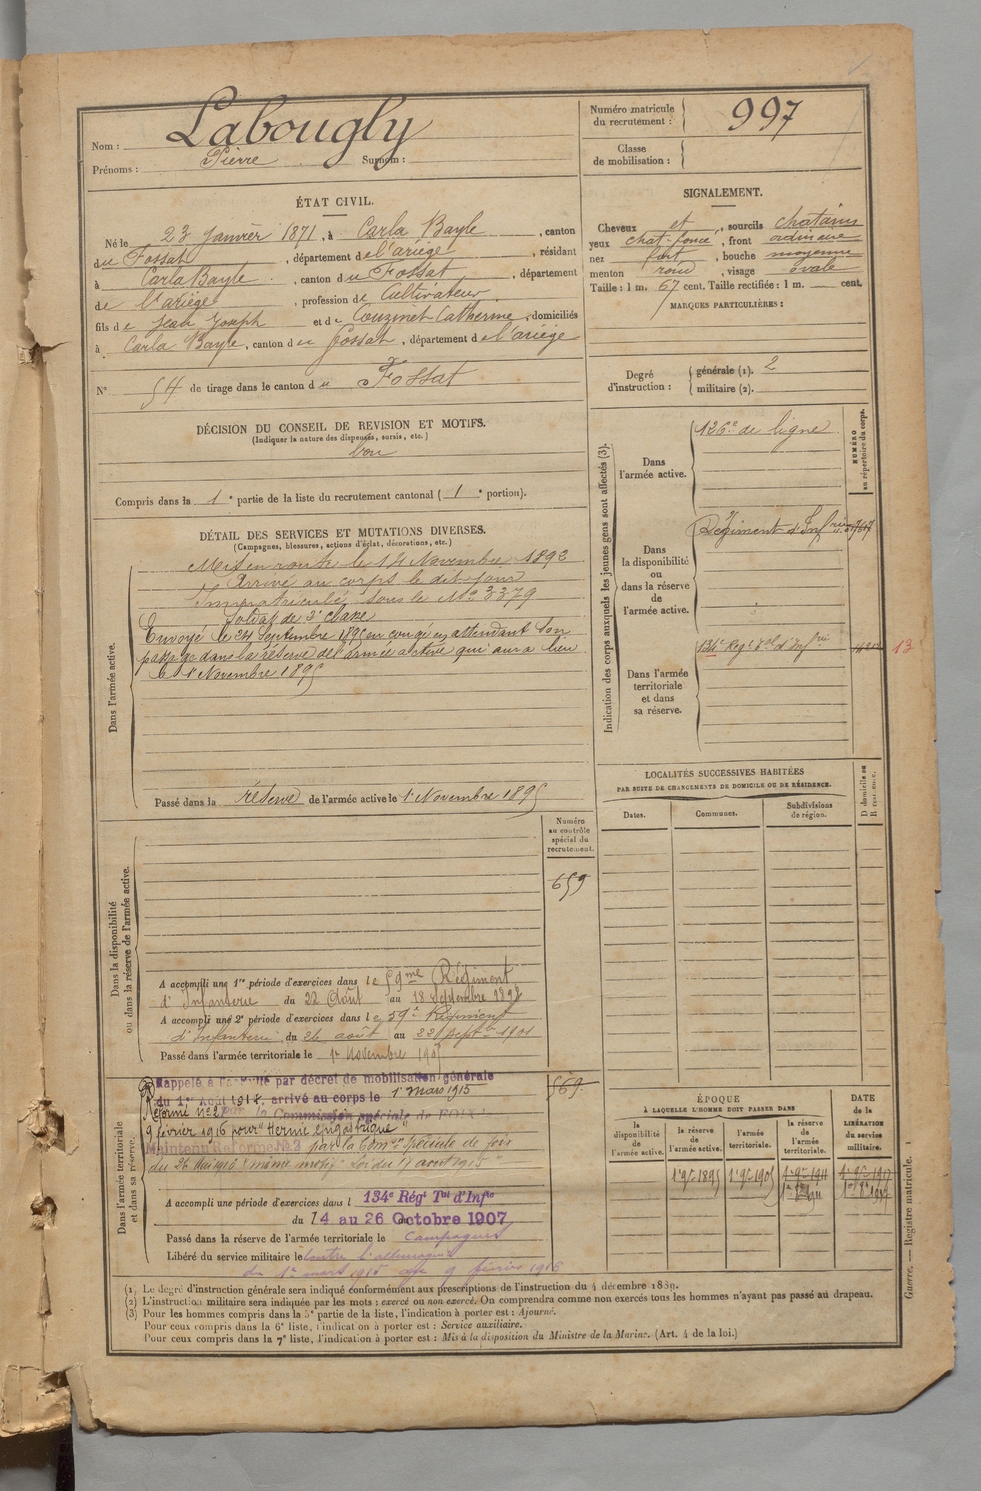 Nom : Labougly
Prénoms : Pierre Surnom :
Numéro matricule du recrutement : 997
Classe de mobilisation :
ÉTAT CIVIL.
Né le 23 janvier 1871, à Carla Bayle, canton
du Fossat, département de l'ariège, résidant
à Carla Bayle, canton du Fossat, département
de l'ariège, profession de Cultivateur
fils de Jean Joseph et de Couzinet Catherine, domiciliés
à Carla Bayle, canton du Fossat, département de l'ariège
N° 54 de tirage dans le canton du Fossat
SIGNALEMENT.
Cheveux et, sourcils chatains
yeux chat. foncé, front ordinaire
nez fort, bouche moyenne
menton rond, visage ovale
Taille : 1 m. 67 cent. Taille rectifiée : 1 m. cent.
MARQUES PARTICULIÈRES :
Degré d'instruction : générale (1). 2
militaire (2).
DÉCISION DU CONSEIL DE REVISION ET MOTIFS.
(Indiquer la nature des dispenses, sursis, etc.)
bon
Compris dans la 1e partie de la liste du recrutement cantonal (1e portion).
DÉTAIL DES SERVICES ET MUTATIONS DIVERSES.
(Campagnes, blessures, actions d'éclat, décorations, etc.)
Dans l'armée active.
Mis en route le 14 Novembre 1892
Arrivé au corps le dit jour
Immatriculé sous le No 3379
Soldat de 2e classe
Envoyé le 24 Septembre 1895 en congé en attendant son
passage dans la réserve de l'armée active qui aura lieu
le 1er Novembre 1895
Passé dans la réserve de l'armée active le 1er Novembre 1895
Indication des corps auxquels les jeunes gens sont affectés (3).
NUMÉRO au répertoire du corps.
Dans l'armée active.
126e de ligne
Dans la disponibilité ou dans la réserve de l'armée active.
Régiment d'Infrie
Dans l'armée territoriale et dans sa réserve.
134e Regt Tal d'Infrie
13
LOCALITÉS SUCCESSIVES HABITÉES
PAR SUITE DE CHANGEMENTS DE DOMICILE OU DE RÉSIDENCE.
Dates.
Communes.
Subdivisions de région.
D domicile ou R résidence.
Dans la disponibilité ou dans la réserve de l'armée active.
Numéro au contrôle spécial du recrutement.
659
A accompli une 1re période d'exercices dans le 59me Régiment
d'Infanterie du 22 Août au 18 Septembre 1898
A accompli une 2e période d'exercices dans le 59e Régiment
d'Infanterie du 26 août au 22 Septre 1901
Passé dans l'armée territoriale le 1er Novembre 1905
Dans l'armée territoriale et dans sa réserve.
Rappelé à l'activité par décret de mobilisation générale
du 1er Août 1914, arrivé au corps le 1er mars 1915
569
Réformé no 2 par la Commission spéciale de FOIX
9 février 1916 pour "Hernie épigastrique"
Maintenu Réformé No 2 par la Comon spéciale de foix
A accompli une période d'exercices dans l 134e Régt Tal d'Infie
du 14 au 26 Octobre 1907
Passé dans la réserve de l'armée territoriale le Campagnes
Libéré du service militaire le contre l'allemagne
du 1er mars 1915 au 9 février 1916
ÉPOQUE
À LAQUELLE L'HOMME DOIT PASSER DANS
la disponibilité de l'armée active.
la réserve de l'armée active.
l'armée territoriale.
la réserve de l'armée territoriale.
DATE de la LIBÉRATION du service militaire.
1er 9bre 1895
1er 9bre 1905
1er 9bre 1911
1er 9bre 1917
(1) Le degré d'instruction générale sera indiqué conformément aux prescriptions de l'instruction du 4 décembre 1889.
(2) L'instruction militaire sera indiquée par les mots : exercé ou non exercé. On comprendra comme non exercés tous les hommes n'ayant pas passé au drapeau.
(3) Pour les hommes compris dans la 5e partie de la liste, l'indication à porter est : Ajourné.
Pour ceux compris dans la 6e liste, l'indication à porter est : Service auxiliaire.
Pour ceux compris dans la 7e liste, l'indication à porter est : Mis à la disposition du Ministre de la Marine. (Art. 4 de la loi.)
Guerre. — Registre matricule. 1